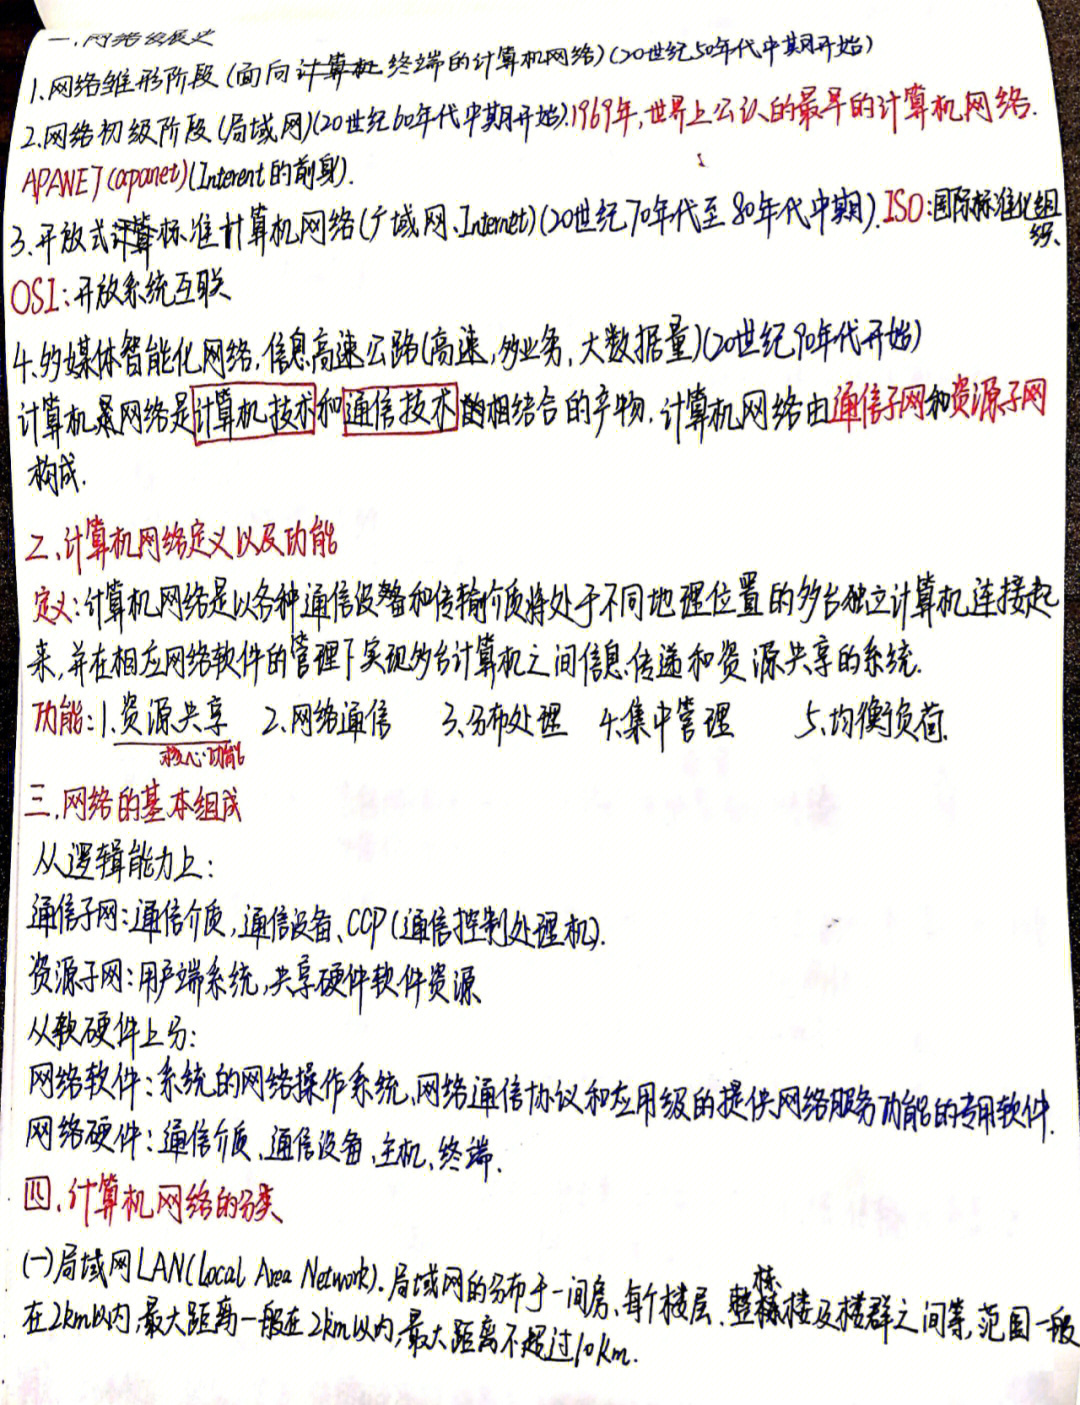 一.网络发展史
1.网络雏形阶段(面向计算机终端的计算机网络)(20世纪50年代中期开始)
2.网络初级阶段(局域网)(20世纪60年代中期开始).1969年,世界上公认的最早的计算机网络.
APANET(apanet)(Interent的前身).
3.开放式计算标准计算机网络(广域网、Internet)(20世纪70年代至80年代中期).ISO:国际标准化组
织、
OSI:开放系统互联
4.多媒体智能化网络,信息高速公路(高速,多业务,大数据量)(20世纪90年代开始)
计算机网络是计算机技术和通信技术的相结合的产物.计算机网络由通信子网和资源子网
构成.
二.计算机网络定义以及功能
定义:计算机网络是以各种通信设备和传输介质将处于不同地理位置的多台独立计算机连接起
来,并在相应网络软件的管理下实现多台计算机之间信息传递和资源共享的系统.
功能:1.资源共享 2.网络通信 3.分布处理 4.集中管理 5.均衡负荷.
核心功能
三.网络的基本组成
从逻辑能力上:
通信子网:通信介质,通信设备、CCP(通信控制处理机).
资源子网:用户端系统,共享硬件软件资源
从软硬件上分:
网络软件:系统的网络操作系统、网络通信协议和应用级的提供网络服务功能的专用软件.
网络硬件:通信介质、通信设备、主机、终端.
四.计算机网络的分类
(一)局域网LAN(Local Area Network).局域网的分布于一间房、每个楼层、整栋楼及楼群之间等,范围一般
在2km以内,最大距离一般在2km以内,最大距离不超过10km.